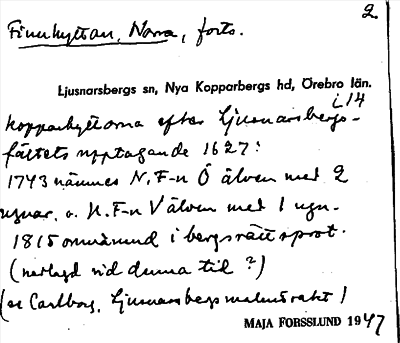 2.
Finnhyttan, Norra, forts.
Ljusnarsbergs sn, Nya Kopparbergs hd, Örebro län.
i 14
kopparhyttorna efter Ljusnarsbergs-
fältets upptagande 1627:
1743 nämnes N. F-n Ö älven med 2
ugnar o. N. F-n V älven med 1 ugn.
1815 omnämnd i bergsrätts prot.
(nerlagd vid denna tid ?)
(se Carlborg, Ljusnarsbergs malmtrakt)
MAJA FORSSLUND 1947